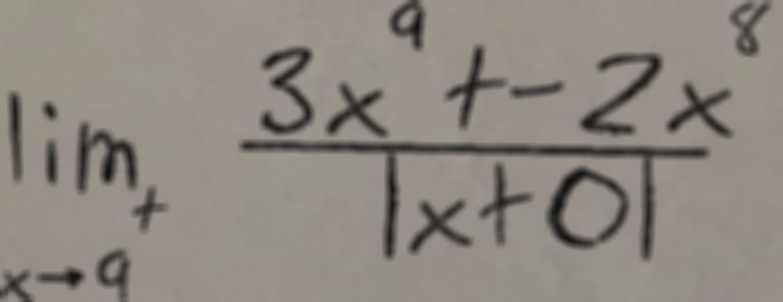 \lim_{x \to 9^+} \frac{3x^9 + -2x^8}{|x+0|}